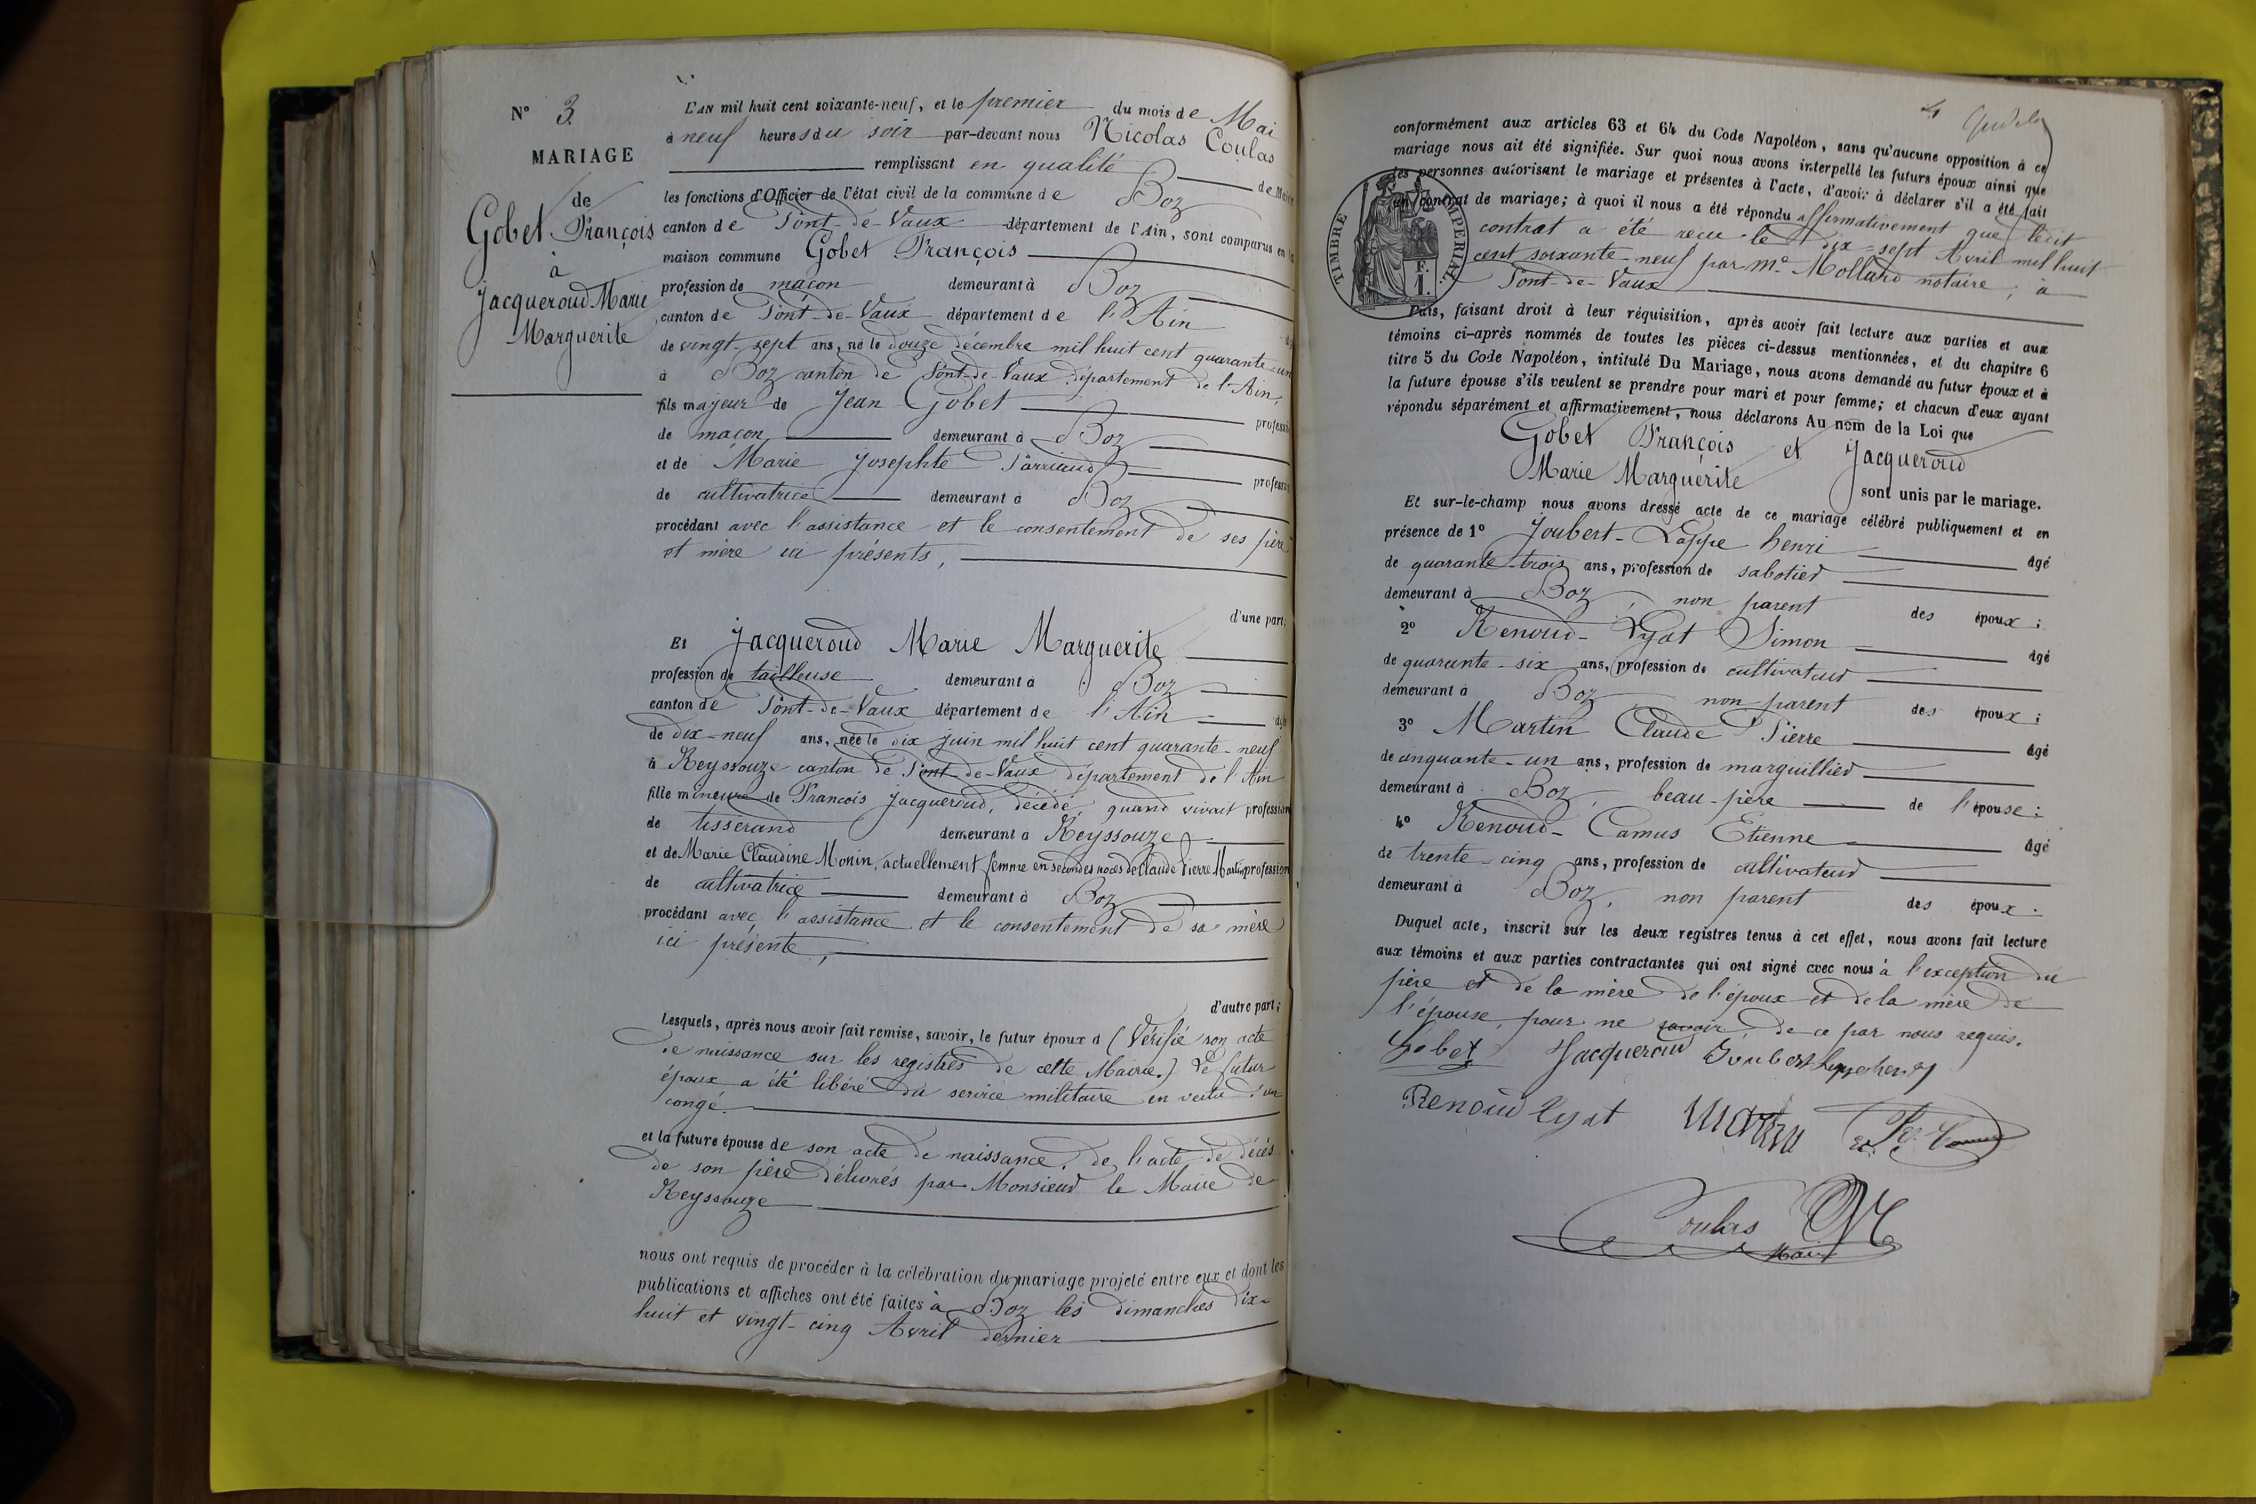 N° 3.
MARIAGE
de
Gobet François
à
Jacqueroud Marie
Marguerite
L'AN mil huit cent soixante-neuf, et le premier du mois de Mai
à neuf heures du soir par-devant nous Nicolas Coulas
remplissant en qualité de Maire
les fonctions d'Officier de l'état civil de la commune de Boz
canton de Pont-de-Vaux département de l'Ain, sont comparus en la
maison commune Gobet François
profession de maçon demeurant à Boz
canton de Pont-de-Vaux département de l'Ain
de vingt-sept ans, né le douze décembre mil huit cent quarante-un
à Boz canton de Pont-de-Vaux département de l'Ain,
fils majeur de Jean Gobet profession
de maçon demeurant à Boz
et de Marie Josephte Parriaud profession
de cultivatrice demeurant à Boz
procédant avec l'assistance et le consentement de ses père
et mère ici présents,
d'une part;
Et Jacqueroud Marie Marguerite
profession de tailleuse demeurant à Boz
canton de Pont-de-Vaux département de l'Ain âgée
de dix-neuf ans, née le dix juin mil huit cent quarante-neuf
à Reyssouze canton de Pont-de-Vaux département de l'Ain
fille mineure de François Jacqueroud, décédé, quand vivait profession
de tisserand demeurant à Reyssouze
et de Marie Claudine Monin, actuellement femme en secondes noces de Claude Pierre Martin profession
de cultivatrice demeurant à Boz
procédant avec l'assistance et le consentement de sa mère
ici présente,
d'autre part;
Lesquels, après nous avoir fait remise, savoir, le futur époux d (Vérifié son acte
de naissance sur les registres de cette Mairie.) Le futur
époux a été libéré du service militaire en vertu d'un
congé.
et la future épouse de son acte de naissance, de l'acte de décès
de son père délivrés par Monsieur le Maire de
Reyssouze
nous ont requis de procéder à la célébration du mariage projeté entre eux et dont les
publications et affiches ont été faites à Boz les dimanches dix-
huit et vingt-cinq Avril dernier
4
conformément aux articles 63 et 64 du Code Napoléon, sans qu'aucune opposition à ce
mariage nous ait été signifiée. Sur quoi nous avons interpellé les futurs époux ainsi que
les personnes autorisant le mariage et présentes à l'acte, d'avoir à déclarer s'il a été fait
un contrat de mariage; à quoi il nous a été répondu affirmativement que ledit
contrat a été recu le dix-sept Avril mil huit
cent soixante-neuf par Me Mollard notaire, à
Pont-de-Vaux
TIMBRE IMPERIAL.
F.
1.
Puis, faisant droit à leur réquisition, après avoir fait lecture aux parties et aux
témoins ci-après nommés de toutes les pièces ci-dessus mentionnées, et du chapitre 6
titre 5 du Code Napoléon, intitulé Du Mariage, nous avons demandé au futur époux et à
la future épouse s'ils veulent se prendre pour mari et pour femme; et chacun d'eux ayant
répondu séparément et affirmativement, nous déclarons Au nom de la Loi que
Gobet François et Jacqueroud
Marie Marguerite sont unis par le mariage.
Et sur-le-champ nous avons dressé acte de ce mariage célébré publiquement et en
présence de 1° Joubert-Lappe henri âgé
de quarante-trois ans, profession de sabotier
demeurant à Boz, non parent des époux;
2° Renoud-Lyat Simon âgé
de quarante-six ans, profession de cultivateur
demeurant à Boz non parent des époux;
3° Martin Claude Pierre âgé
de cinquante-un ans, profession de marguillier
demeurant à Boz, beau-père de l'épouse;
4° Renoud-Camus Etienne âgé
de trente-cinq ans, profession de cultivateur
demeurant à Boz, non parent des époux.
Duquel acte, inscrit sur les deux registres tenus à cet effet, nous avons fait lecture
aux témoins et aux parties contractantes qui ont signé avec nous à l'exception du
père et de la mère de l'époux et de la mère de
l'épouse, pour ne savoir, de ce par nous requis.
Gobet Jacqueroud Joubert lappe henry
Renoud lyat Martin
Coulas
Maire